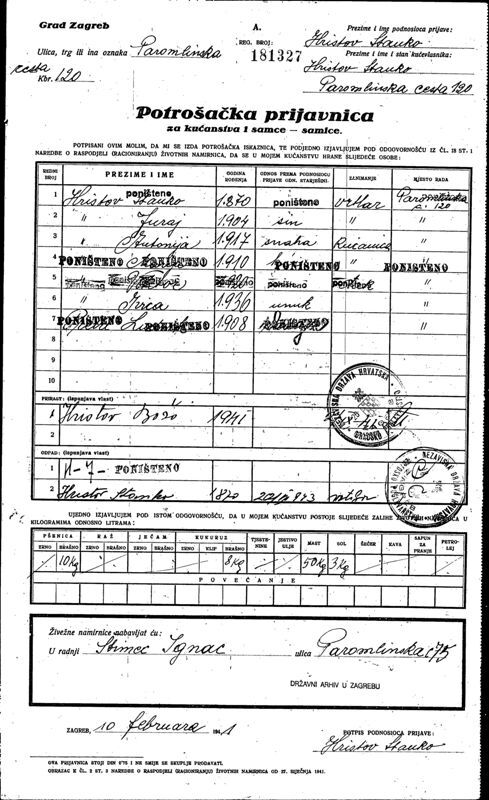 Grad Zagreb
A.
Prezime i ime podnosioca prijave:
Hristov Stanko
Ulica, trg ili ina oznaka Paromlinska
REG. BROJ: 181327
Prezime i ime i stan kućevlasnika:
cesta
Kbr. 120
Hristov Stanko
Paromlinska cesta 120
Potrošačka prijavnica
za kućanstva i samce — samice.
POTPISANI OVIM MOLIM, DA MI SE IZDA POTROŠAČKA ISKAZNICA, TE PODJEDNO IZJAVLJUJEM POD ODGOVORNOŠĆU IZ ČL. 18 ST 1
NAREDBE O RASPODJELI (RACIONIRANJU) ŽIVOTNIH NAMIRNICA, DA SE U MOJEM KUĆANSTVU HRANE SLIJEDEĆE OSOBE:
REDNI BROJ PREZIME I IME GODINA ROĐENJA ODNOS PREMA PODNOSIOCU PRIJAVE ODN. STARJEŠINI ZANIMANJE MJESTO RADA
1 Hristov Stanko poništeno 1.870 poništeno vrtlar Paromlinska c. 120
2 " Juraj 1.904 sin " "
3 " Antonija 1.917 snaha kućanica "
4 PONIŠTENO PONIŠTENO 1.910 PONIŠTENO " PONIŠTENO
5 poništeno poništeno poništeno
6 " Ivica 1.936 unuk "
7 PONIŠTENO PONIŠTENO 1.908 PONIŠTENO "
8
9
10
PRIRAST: (ispunjava vlast)
1 Hristov Božo 1941
2
NEZAVISNA DRŽAVA HRVATSKA
ODPAD: (ispunjava vlast)
1 PONIŠTENO
2 Hristov Stanko 1870 vrtlar
UJEDNO IZJAVLJUJEM POD ISTOM ODGOVORNOŠĆU, DA U MOJEM KUĆANSTVU POSTOJE SLIJEDEĆE ZALIHE ŽIVOTNIH NAMIRNICA U
KILOGRAMIMA ODNOSNO LITRAMA:
PŠENICA RAŽ JEČAM KUKURUZ TJESTENINE JESTIVO ULJE MAST SOL ŠEĆER KAVA SAPUN ZA PRANJE PETROLEJ
ZRNO BRAŠNO ZRNO BRAŠNO ZRNO BRAŠNO ZRNO KLIP BRAŠNO
10 Kg 8 Kg 50 Kg 3 Kg
POVEĆANJE
Živežne namirnice nabavljat ću:
U radnji Štimec Ignac ulica Paromlinska 175
DRŽAVNI ARHIV U ZAGREBU
ZAGREB, 10 februara 1941
POTPIS PODNOSIOCA PRIJAVE:
Hristov Stanko
OVA PRIJAVNICA STOJI DIN 0'75 I NE SMIJE SE SKUPLJE PRODAVATI.
OBRAZAC K ČL. 2 ST. 3 NAREDBE O RASPODJELI (RACIONIRANJU) ŽIVOTNIH NAMIRNICA OD 27. SIJEČNJA 1941.